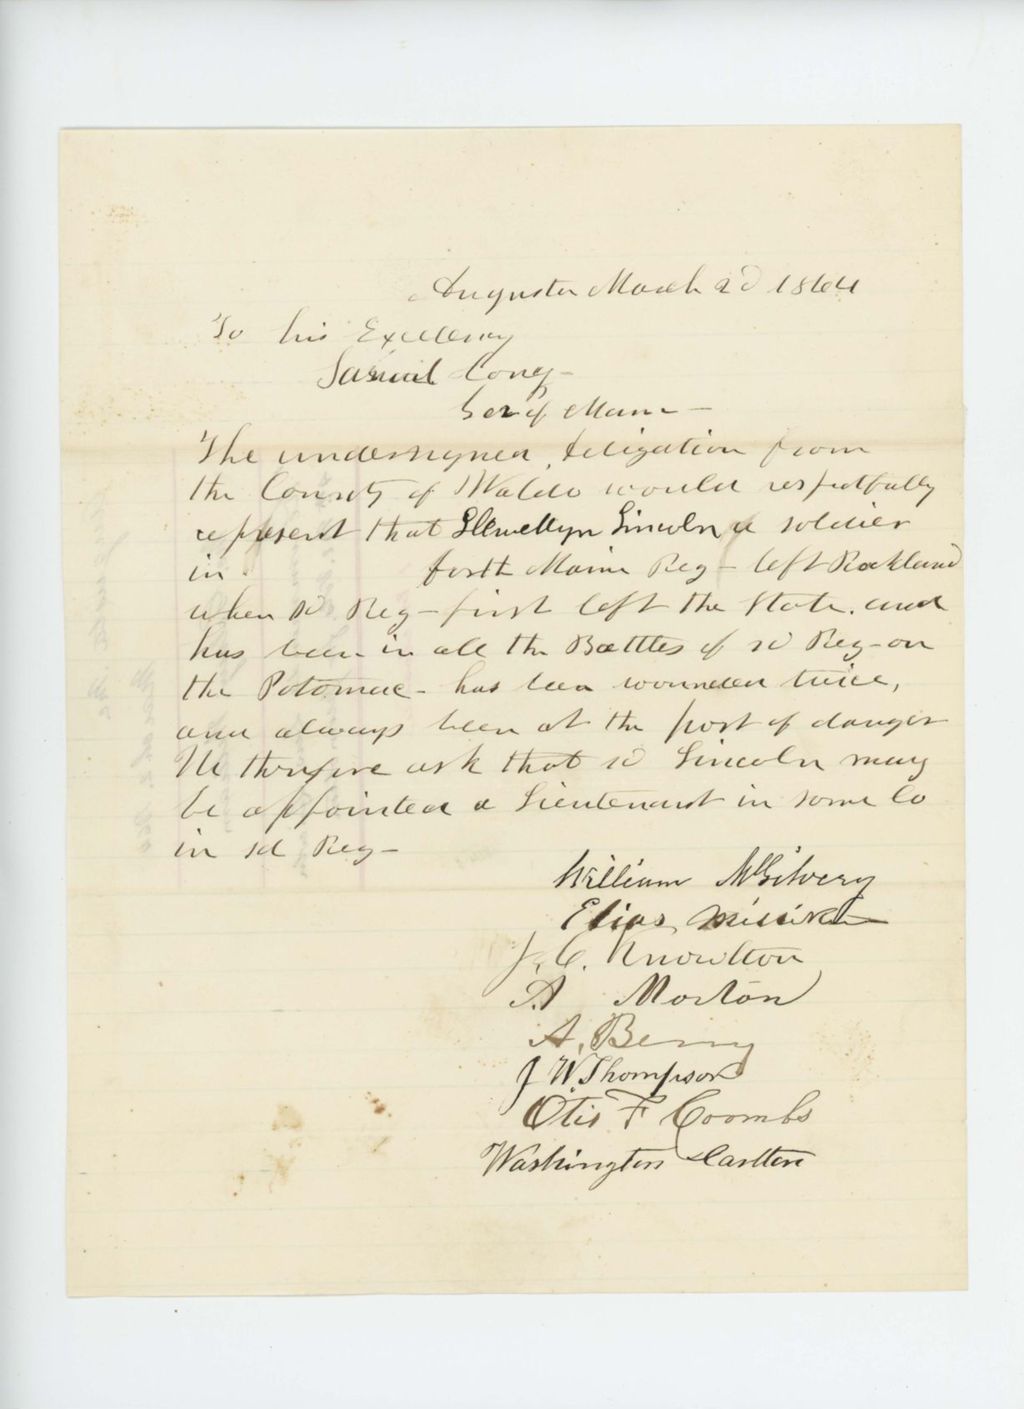 Augusta March 2d 1864
To his Excellency
Samuel Cony-
Gov of Maine-
The undersigned, deligation from
the County of Waldo would respectfully
represent that Llewellyn Lincoln a soldier
in forth Maine Reg- left Rockland
when sd Reg- first left the State. and
has been in all the Battles of sd Reg- on
the Potomac- has been wounded twice,
and always been at the post of danger
We therefore ask that sd Lincoln may
be appointed a Lieutenant in some Co
in sd Reg-
William McGilvery
Elias Milliken
J. C. Knowlton
A Morton
A. Berry
J W. Thompson
Otis F Coombs
Washington Carlton